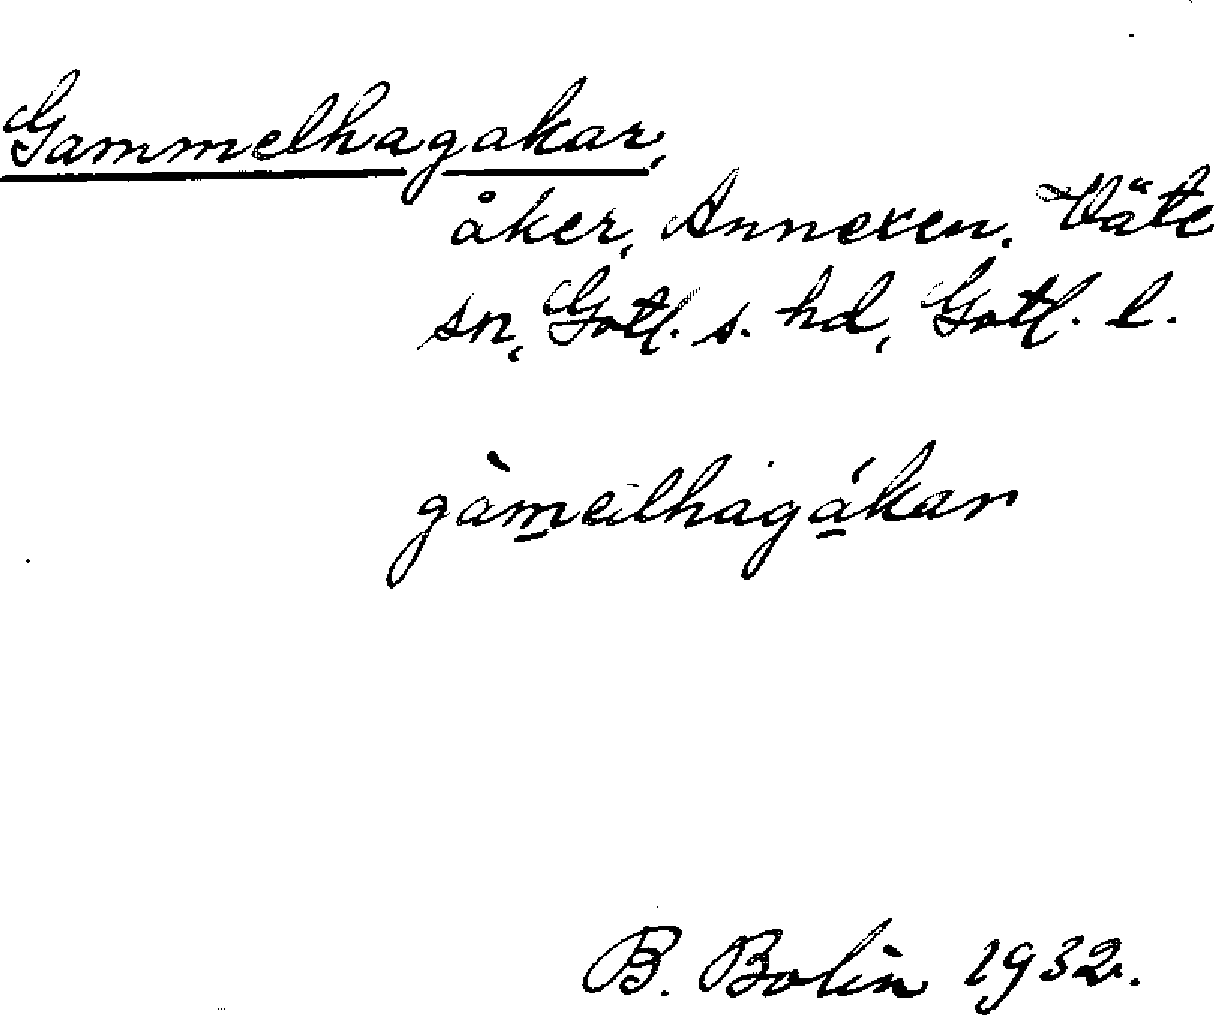 Gammelhagakar,
åker, Annexen. Väte
sn, Gotl. s. hd, Gotl. l.
gàmeilhagákar
B. Bolin 1932.